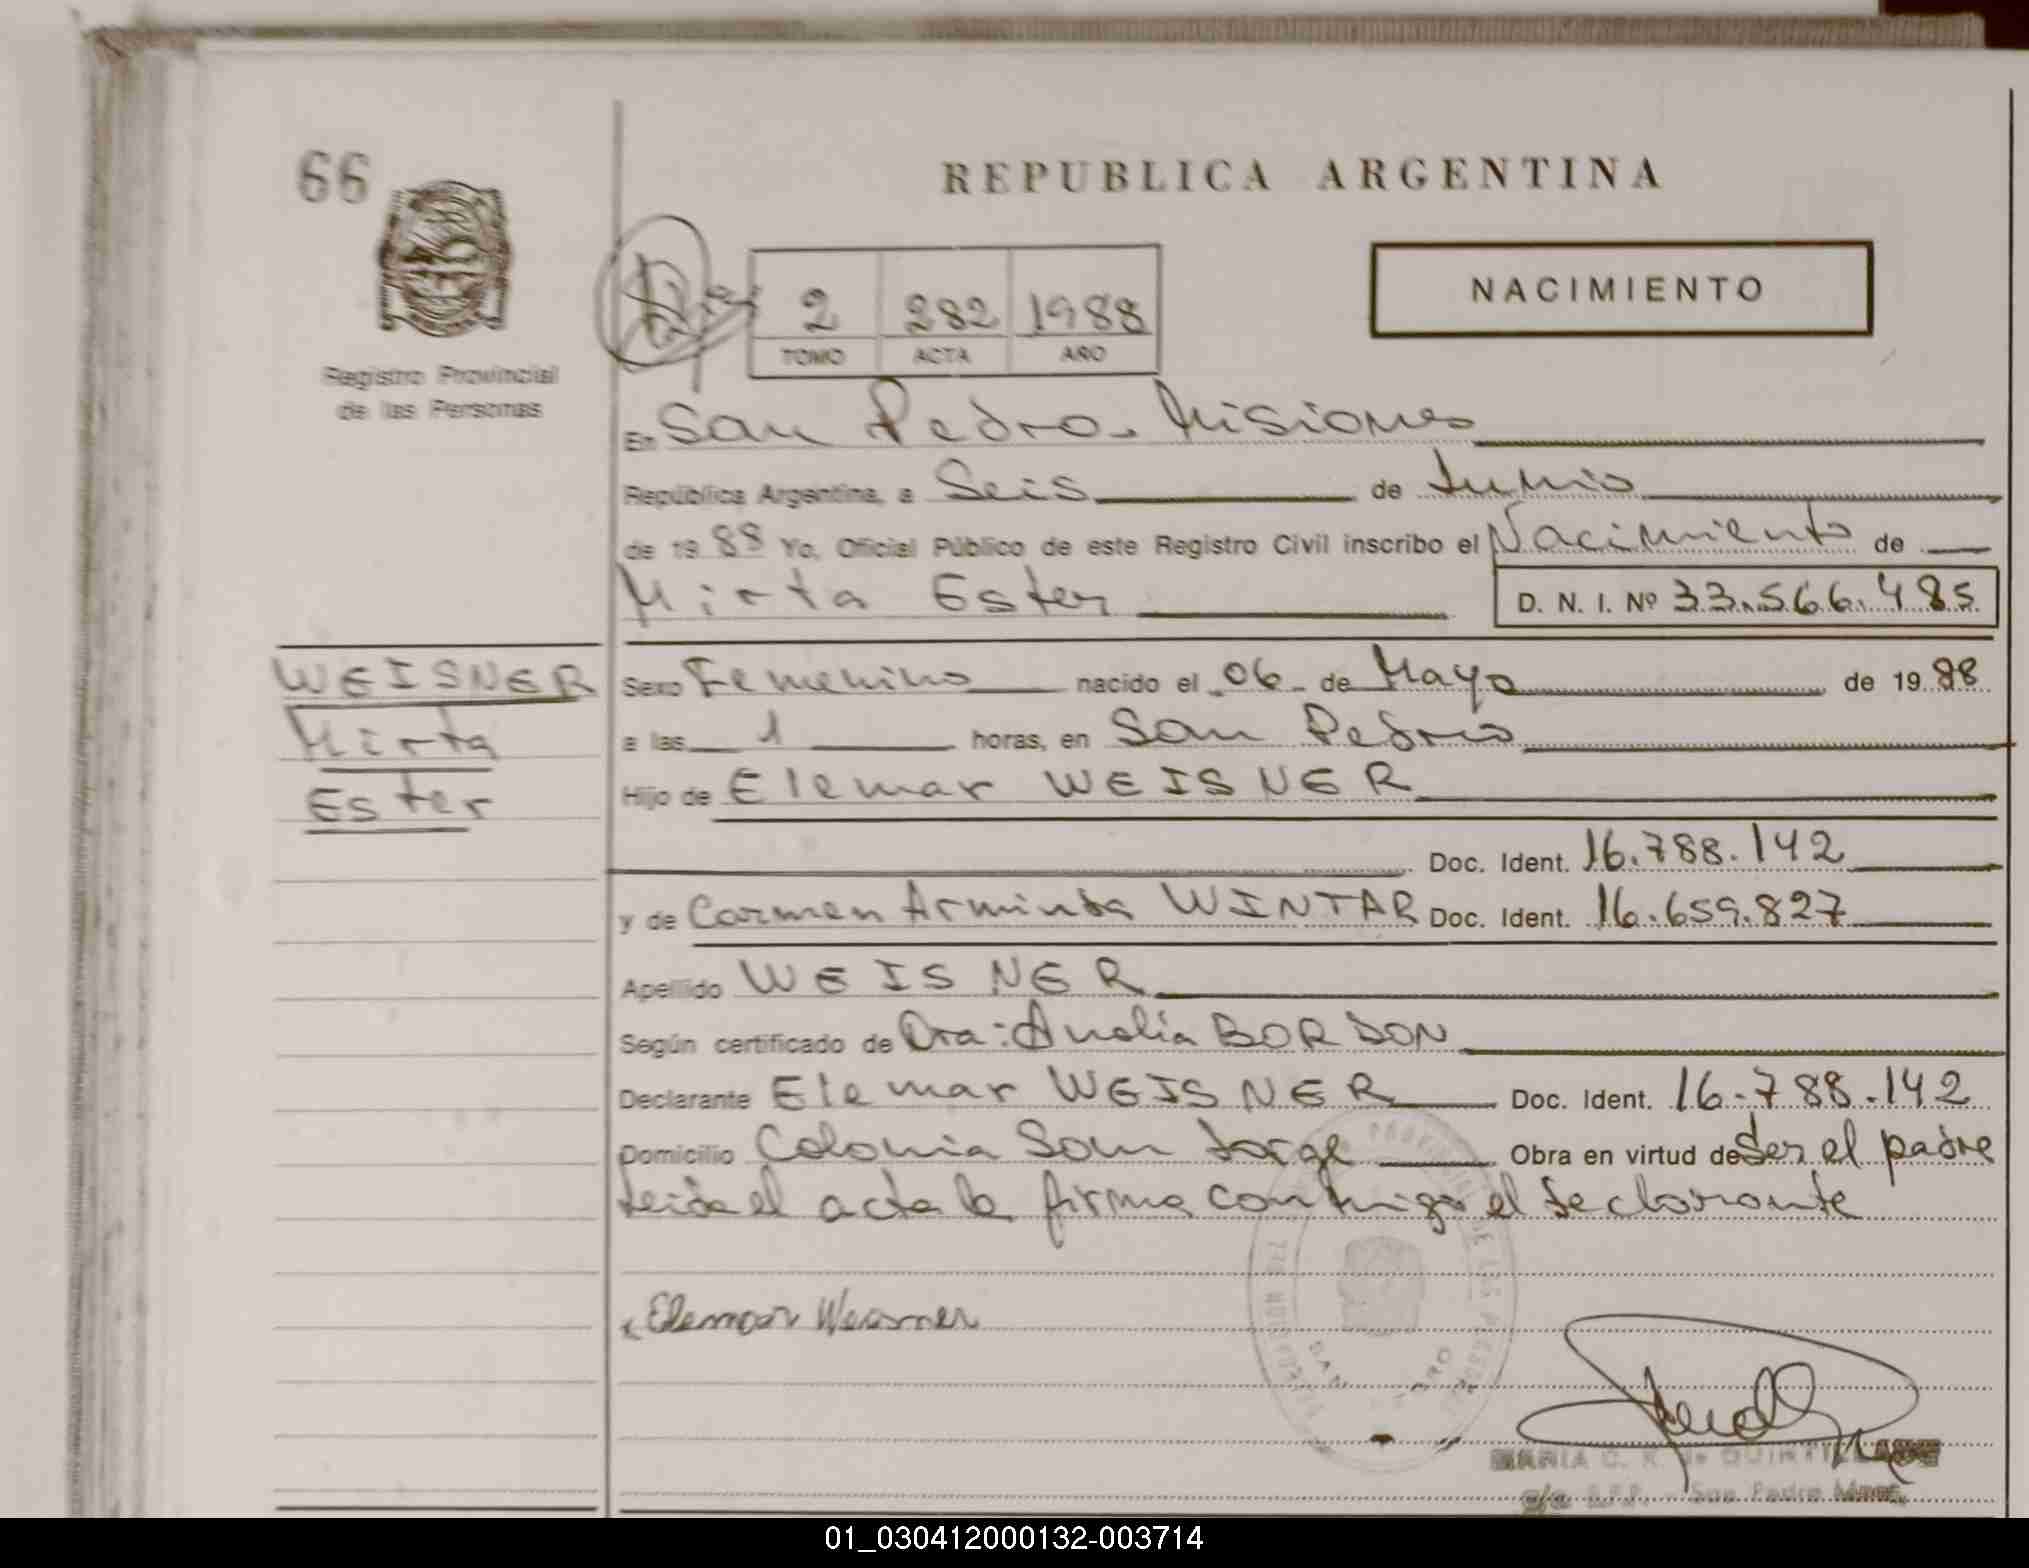 66
REPUBLICA ARGENTINA
NACIMIENTO
2 282 1988
TOMO ACTA AÑO
Registro Provincial
de las Personas
En San Pedro. Misiones
República Argentina, a Seis de Junio
de 1988 Yo, Oficial Público de este Registro Civil inscribo el Nacimiento de
Mirta Ester D. N. I. Nº 33.566.485
WEISNER
Mirta
Ester
Sexo Femenino nacido el 06 de Mayo de 1988
a las 1 horas, en San Pedro
Hijo de Elemar WEISNER
Doc. Ident. 16.788.142
y de Carmen Arminta WINTAR Doc. Ident. 16.659.827
Apellido WEISNER
Según certificado de Dra: Analia BORDON
Declarante Elemar WEISNER Doc. Ident. 16.788.142
Domicilio Colonia San Jorge Obra en virtud de Ser el padre
leida el acta la firma conmigo el declarante
Elemar Weisner
MARIA C. R. de
S.F.P. - San Pedro Mnes.
01_030412000132-003714